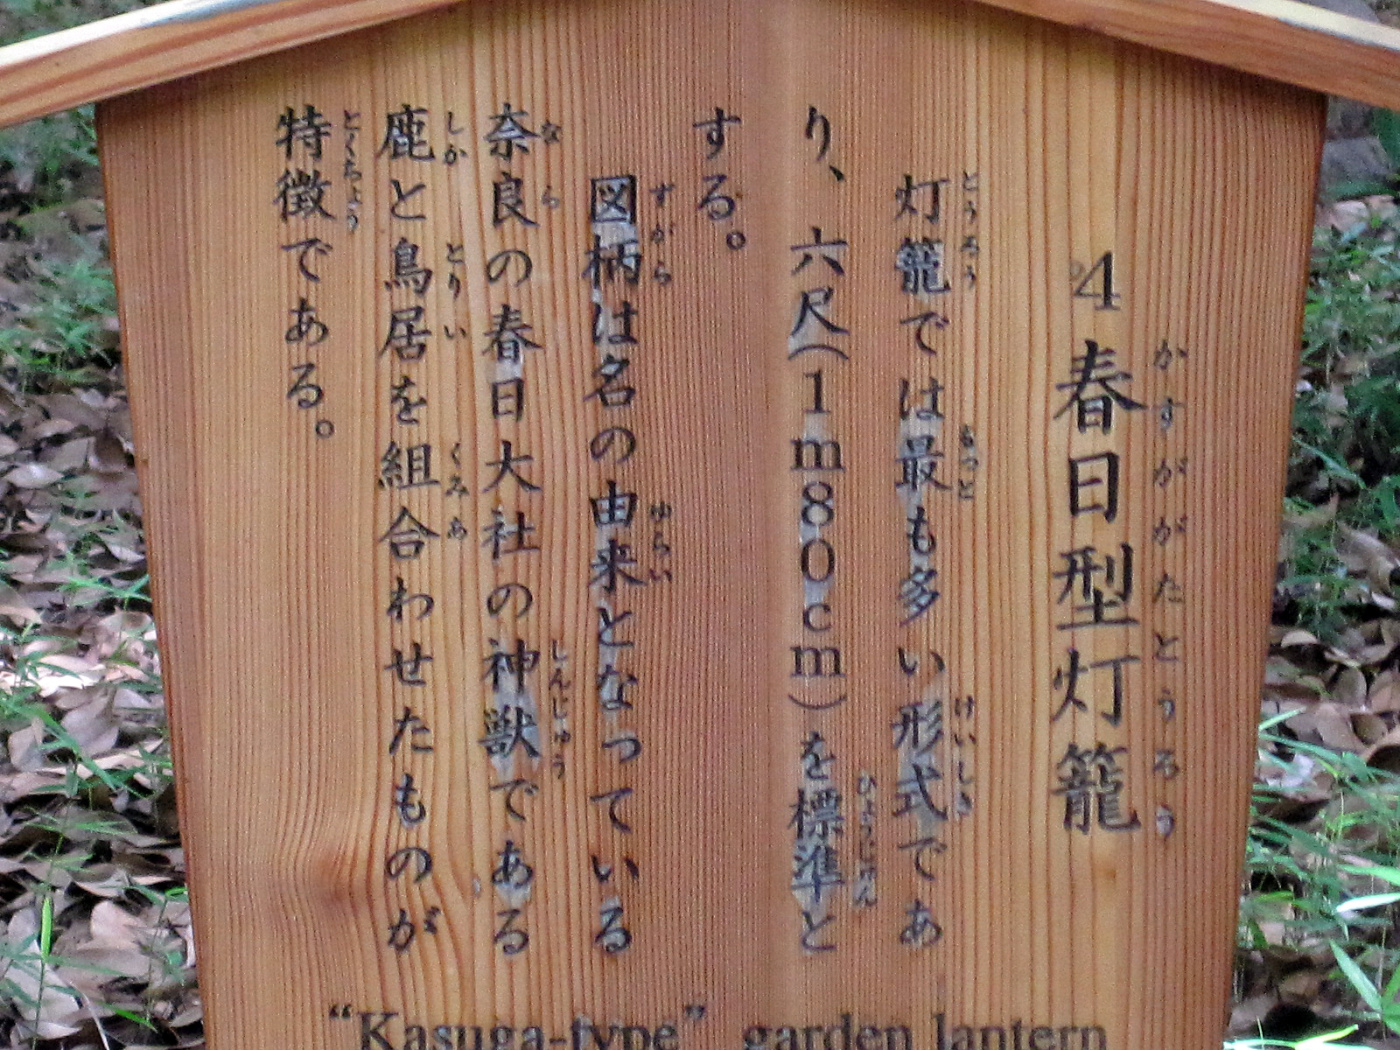 4 春日型灯籠
かすががたとうろう
灯籠では最も多い形式であ
とうろう もっと けいしき
り、六尺(1m80cm)を標準と
ひょうじゅん
する。
図柄は名の由来となっている
ずがら ゆらい
奈良の春日大社の神獣である
なら しんじゅう
鹿と鳥居を組合わせたものが
しか とりい くみあ
特徴である。
とくちょう
“Kasuga-type” garden lantern